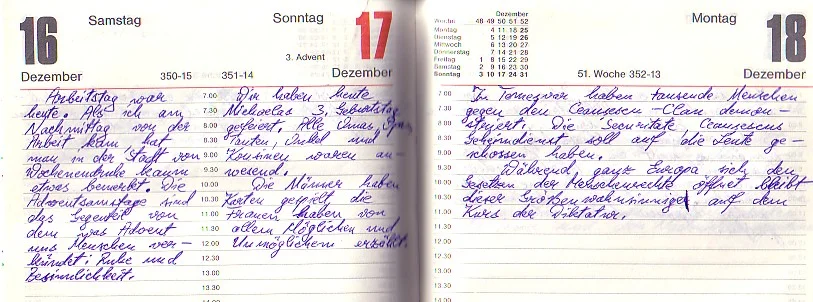 16
Samstag
Dezember
350-15
Arbeitstag war
heute. Als ich am
Nachmittag von der
Arbeit kam hat
man in der Stadt von
Wochenendruhe kaum
etwas bemerkt. Die
Adventsamstage sind
das Gegenteil von
dem was Advent
uns Menschen ver-
kündet: Ruhe und
Besinnlichkeit.
Sonntag
17
3. Advent
351-14
Dezember
7.00
7.30
8.00
8.30
9.00
9.30
10.00
10.30
11.00
11.30
12.00
12.30
13.00
13.30
Wir haben heute
Michaelas 3. Geburtstag
gefeiert. Alle Omas, Opas,
Tanten, Onkel und
Kousinen waren an-
wesend.
Die Männer haben
Karten gespielt die
Frauen haben von
allem Möglichen und
Unmöglichem erzählt.
Dezember
Woche 48 49 50 51 52
Montag 4 11 18 25
Dienstag 5 12 19 26
Mittwoch 6 13 20 27
Donnerstag 7 14 21 28
Freitag 1 8 15 22 29
Samstag 2 9 16 23 30
Sonntag 3 10 17 24 31
Montag
18
51. Woche 352-13
Dezember
7.00
7.30
8.00
8.30
9.00
9.30
10.00
10.30
11.00
11.30
12.00
12.30
13.00
13.30
14.00
In Temeswar haben tausende Menschen
gegen den Ceausescu-Clan demon-
striert. Die Securitate Ceausescus
Geheimdienst soll auf die Leute ge-
schossen haben.
Während ganz Europa sich den
Gesetzen der Menschenrechte öffnet bleibt
dieser Größenwahnsinnige auf dem
Kurs der Diktatur.